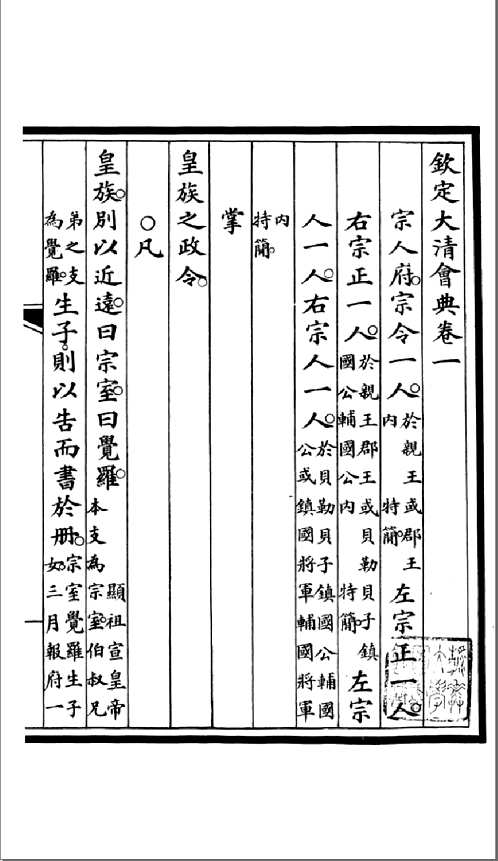 欽定大清會典卷一
宗人府。宗令一人。於親王或郡王內 特簡。左宗正一人。
右宗正一人。於親王郡王或貝勒貝子鎮國公輔國公內 特簡。左宗
人一人。右宗人一人。於貝勒貝子鎮國公輔國公或鎮國將軍輔國將軍
內特簡。
掌
皇族之政令。
○凡
皇族。別以近遠。曰宗室。曰覺羅。顯祖宣皇帝本支為宗室。伯叔兄
弟之支為覺羅。生子。則以告而書於冊。宗室覺羅生子女。三月報府一